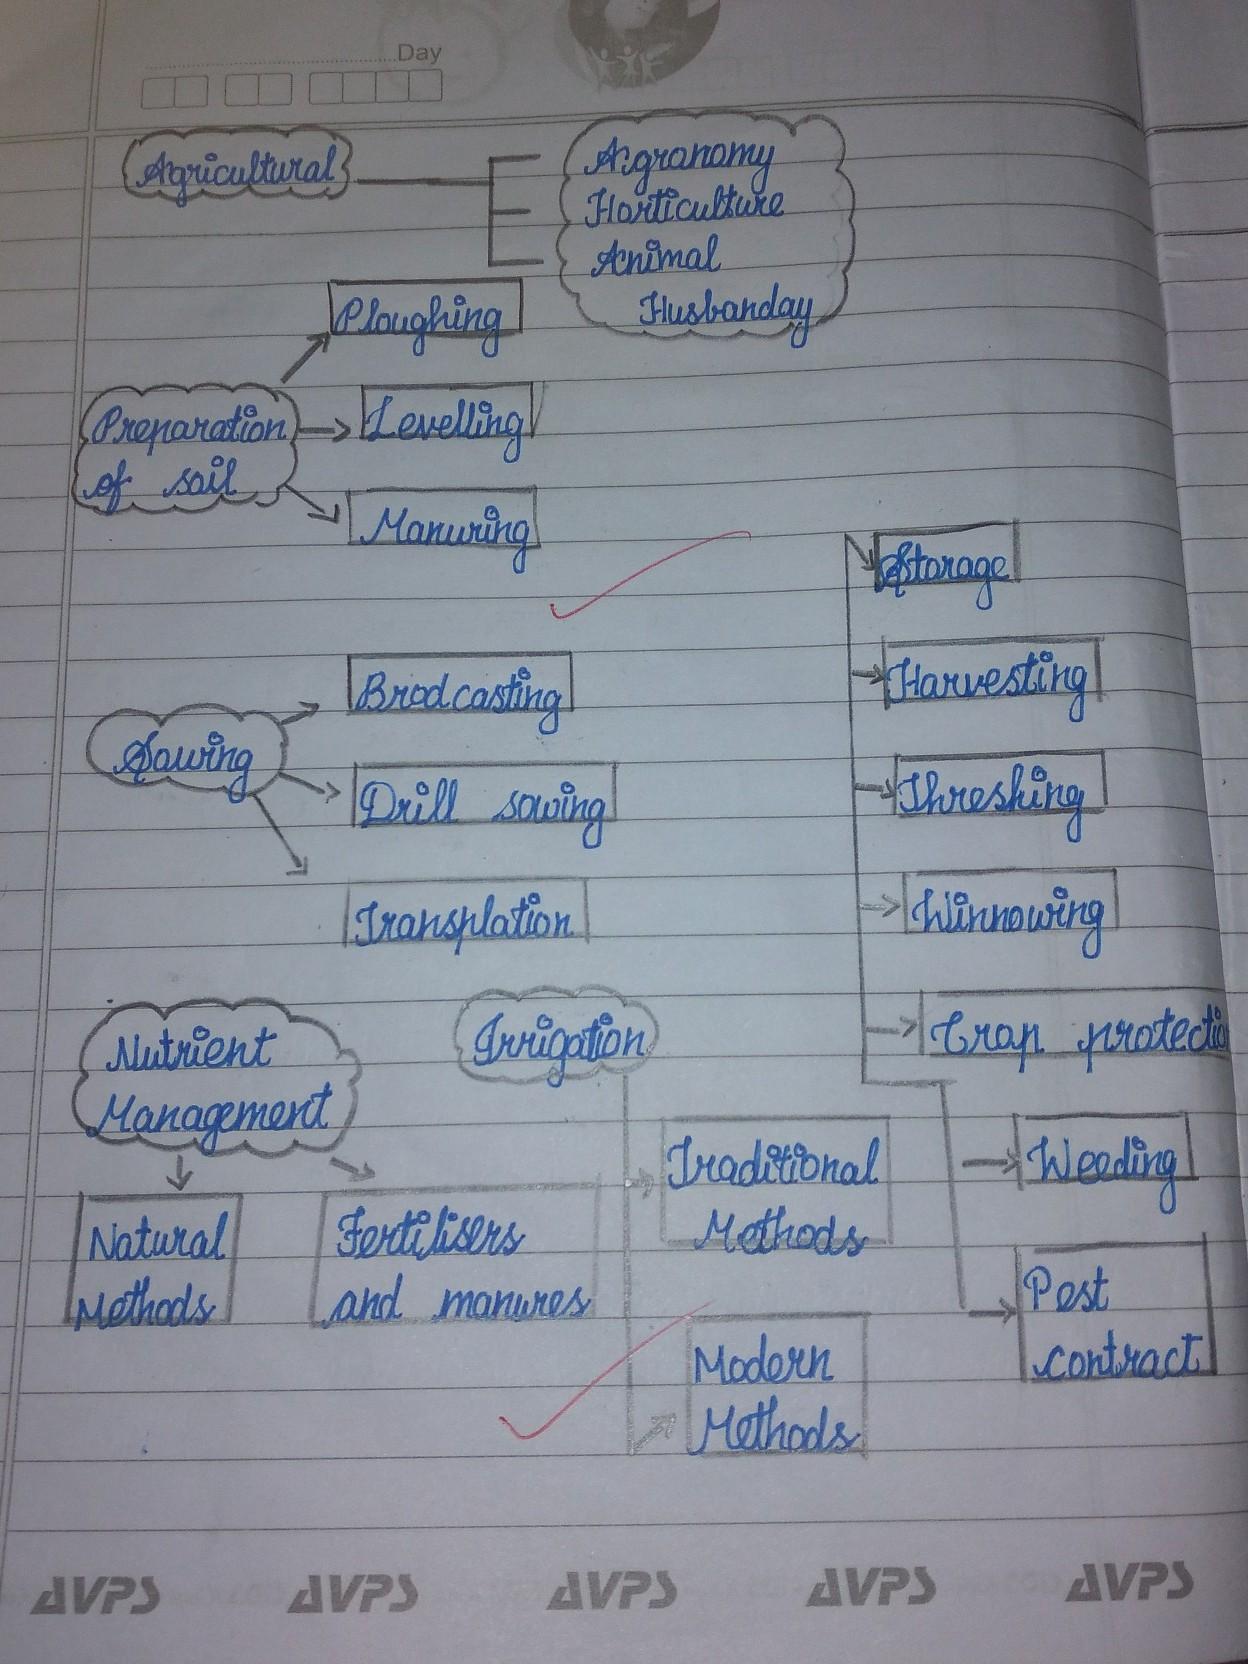 Day
Agricultural
Agronomy
Horticulture
Animal
Husbanday
Ploughing
Preparation
of soil
Levelling
Manuring
Sowing
Brodcasting
Drill sowing
Transplation
Nutrient
Management
Natural
Methods
Fertilisers
and manures
Irrigation
Traditional
Methods
Modern
Methods
Storage
Harvesting
Threshing
Winnowing
Crop protectio
Weeding
Pest
contract
AVPS AVPS AVPS AVPS AVPS